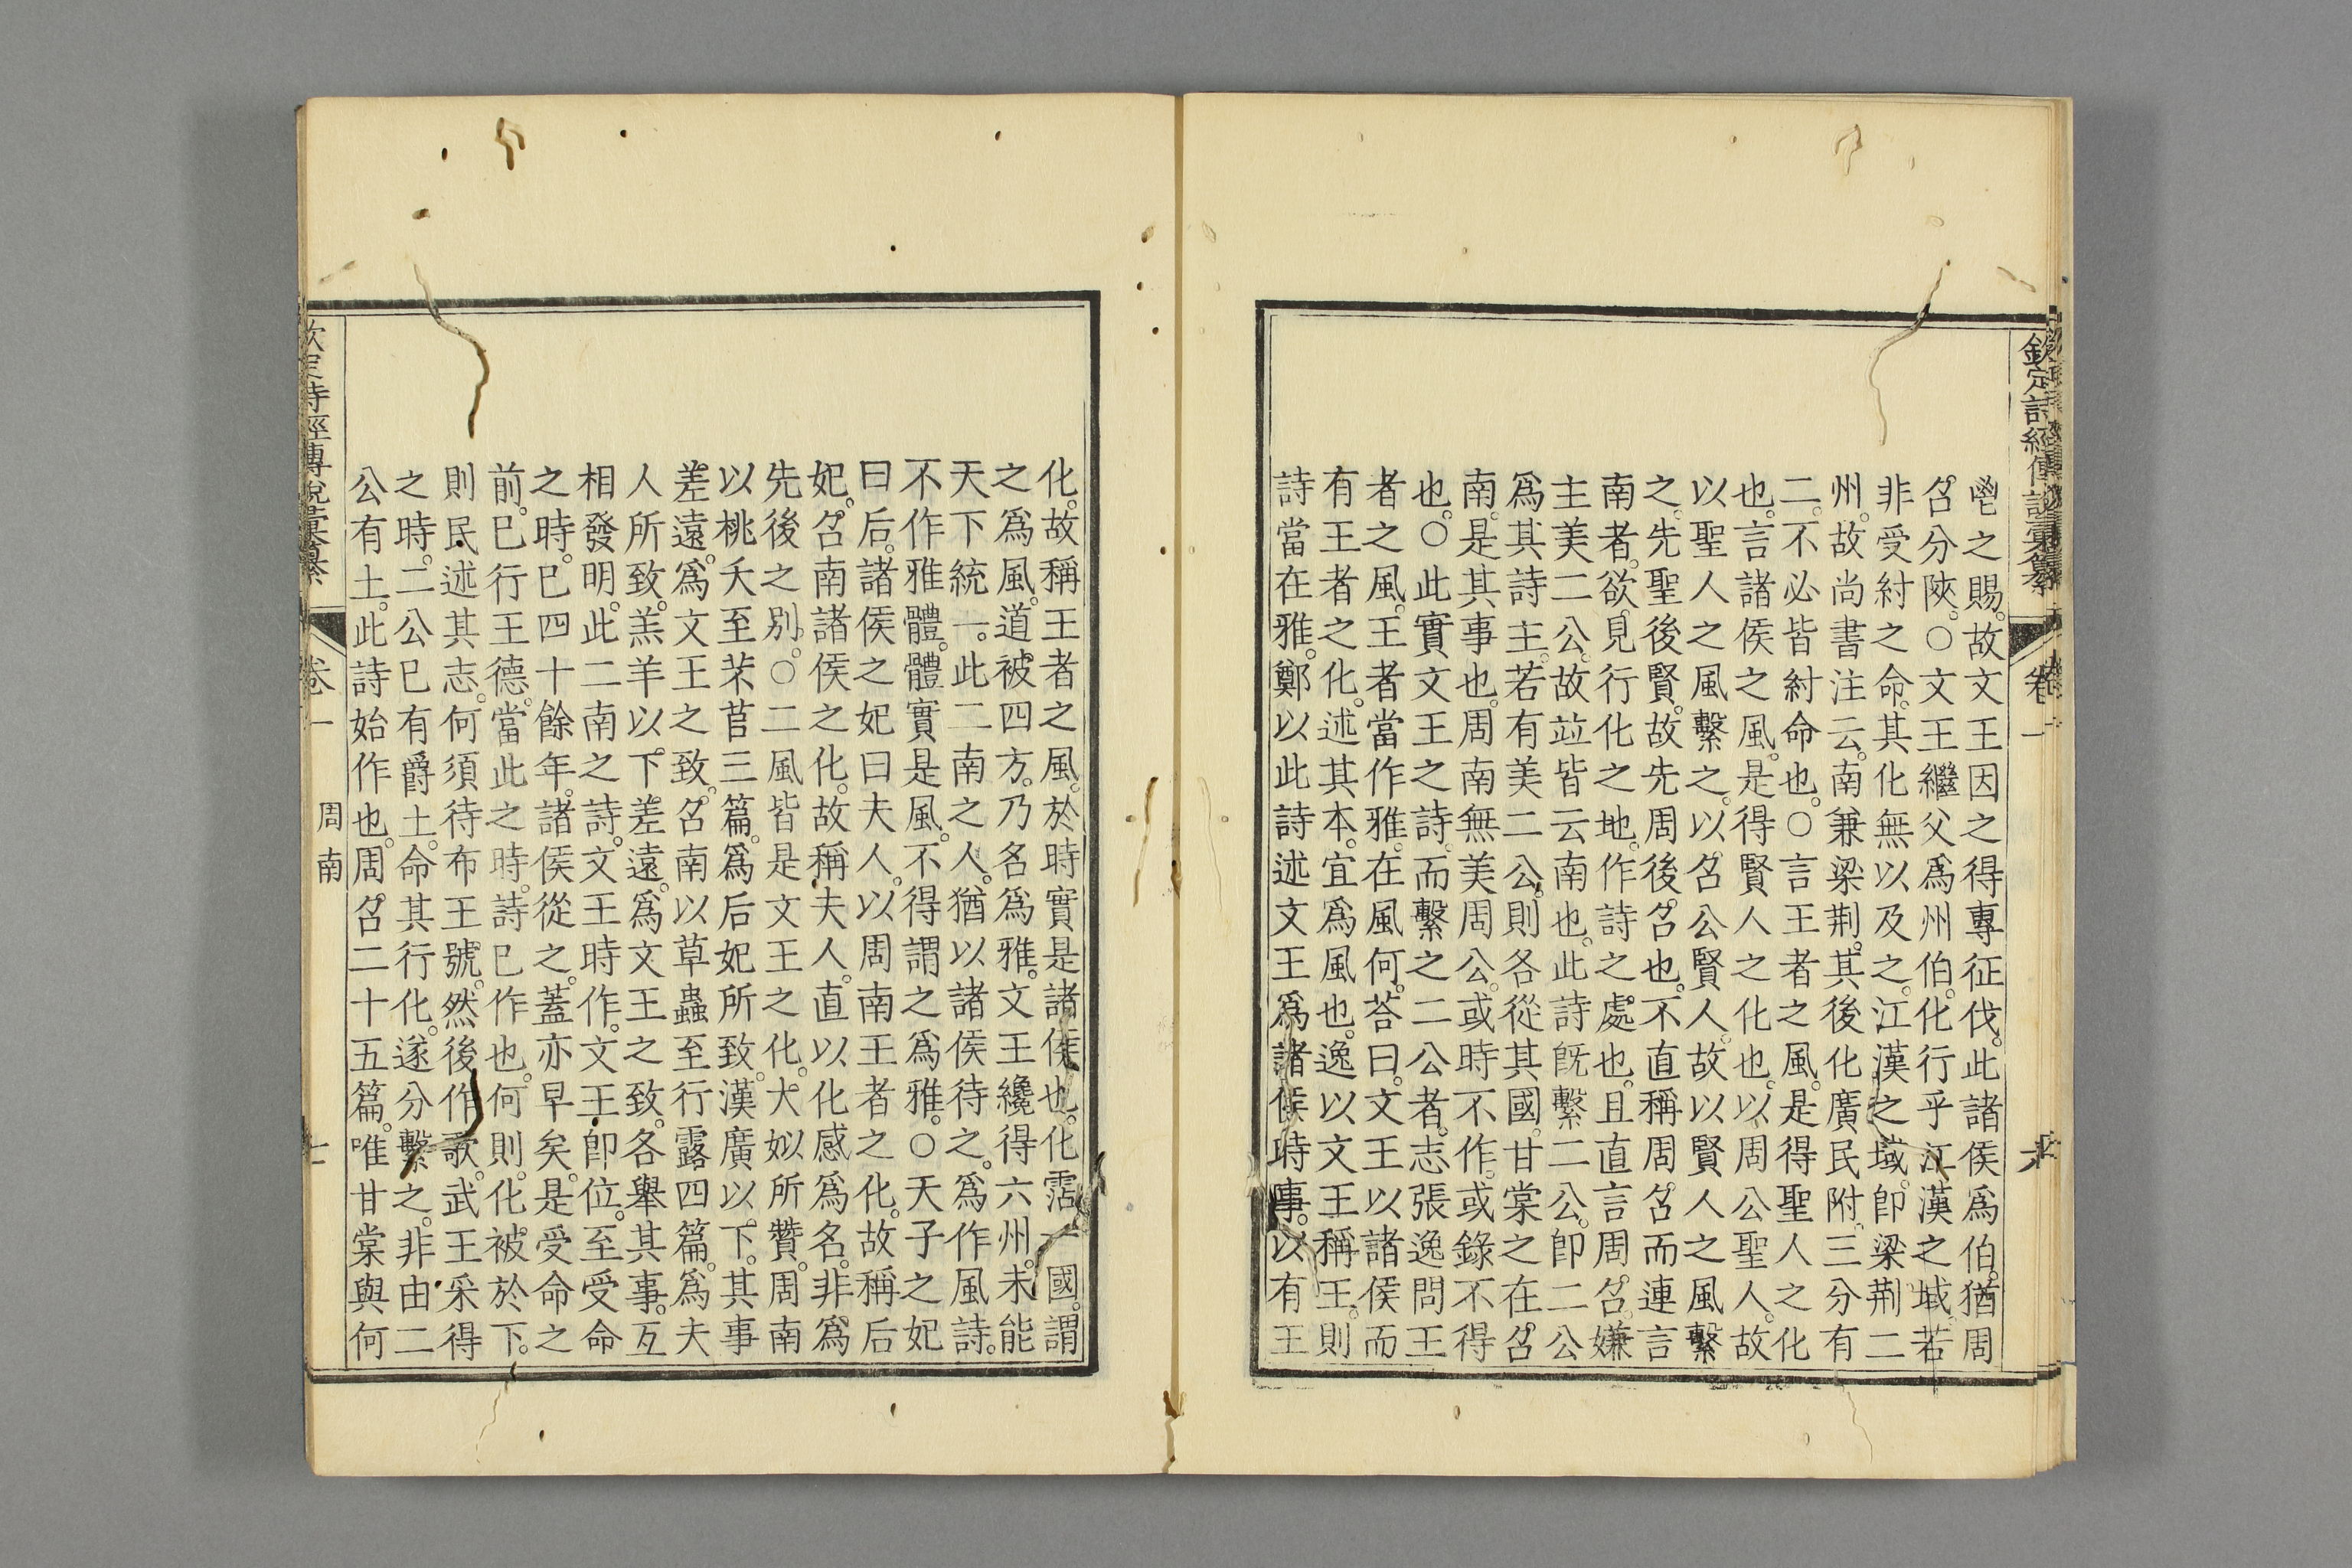 欽定詩經傳說彙纂
卷一
鬯之賜。故文王因之得專征伐。此諸侯爲伯。猶周
召分陝。○文王繼父爲州伯。化行乎江漢之域。若
非受紂之命。其化無以及之。江漢之域。卽梁荆二
州。故尚書注云。南兼梁荆。其後化廣民附。三分有
二。不必皆紂命也。○言王者之風。是得聖人之化
也。言諸侯之風。是得賢人之化也。以周公聖人。故
以聖人之風繫之。以召公賢人。故以賢人之風繫
之。先聖後賢。故先周後召也。不直稱周召而連言
南者。欲見行化之地。作詩之處也。且直言周召。嫌
主美二公。故竝皆云南也。此詩旣繫二公。卽二公
爲其詩主。若有美二公。則各從其國。甘棠之在召
南。是其事也。周南無美周公。或時不作。或錄不得
也。○此實文王之詩。而繫之二公者。志張逸問王
者之風。王者當作雅。在風何。荅曰。文王以諸侯而
有王者之化。述其本。宜爲風也。逸以文王稱王。則
詩當在雅。鄭以此詩述文王爲諸侯時事。以有王
化。故稱王者之風。於時實是諸侯也。化霑一國。謂
之爲風。道被四方。乃名爲雅。文王纔得六州。未能
天下統一。此二南之人。猶以諸侯待之。爲作風詩。
不作雅體。體實是風。不得謂之爲雅。○天子之妃
曰后。諸侯之妃曰夫人。以周南王者之化。故稱后
妃。召南諸侯之化。故稱夫人。直以化感爲名。非爲
先後之別。○二風皆是文王之化。大姒所贊。周南
以桃夭至芣苢三篇。爲后妃所致。漢廣以下。其事
差遠。爲文王之致。召南以草蟲至行露四篇。爲夫
人所致。羔羊以下。差遠。爲文王之致。各舉其事。互
相發明。此二南之詩。文王時作。文王卽位。至受命
之時。已四十餘年。諸侯從之。蓋亦早矣。是受命之
前。已行王德。當此之時。詩已作也。何則。化被於下。
則民述其志。何須待布王號。然後作歌。武王采得
之時。二公已有爵土。命其行化。遂分繫之。非由二
公有土。此詩始作也。周召二十五篇。唯甘棠與何
欽定詩經傳說彙纂
卷一
周南